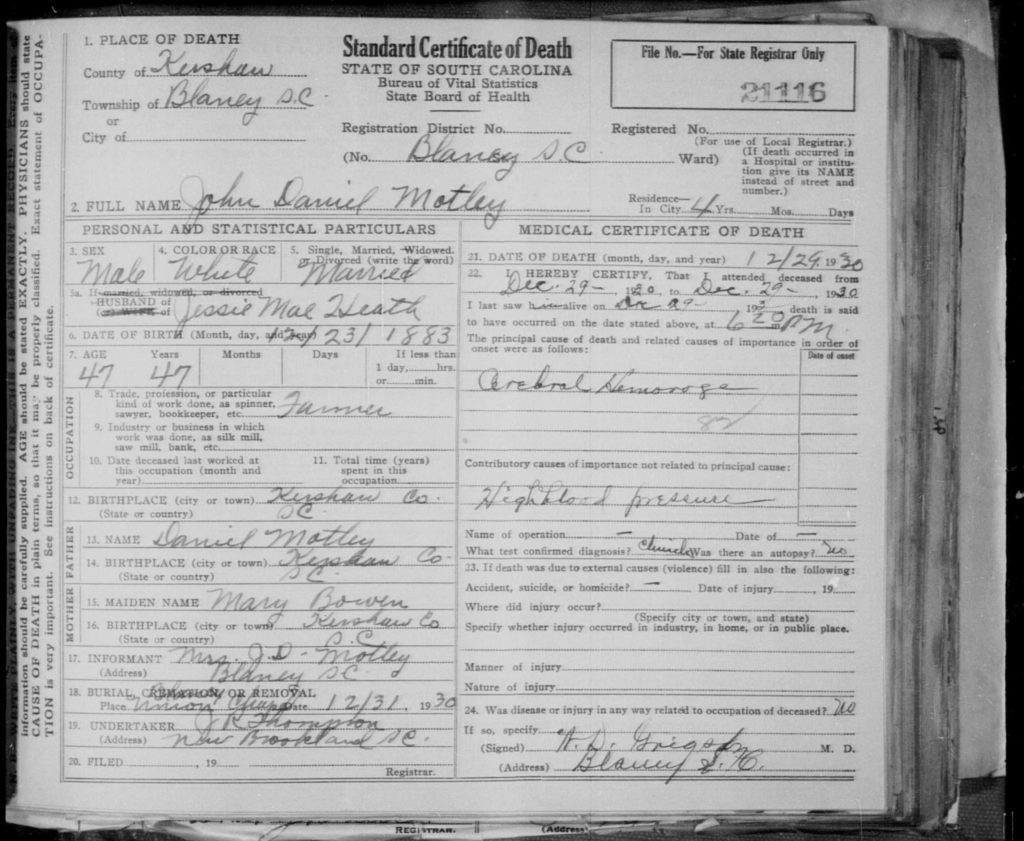 N. B.—WRITE PLAINLY, WITH UNFADING INK—THIS IS A PERMANENT RECORD. Every item of
information should be carefully supplied. AGE should be stated EXACTLY. PHYSICIANS should state
CAUSE OF DEATH in plain terms, so that it may be properly classified. Exact statement of OCCUPA-
TION is very important. See instructions on back of certificate.
1. PLACE OF DEATH
County of Kershaw
Township of Blaney S.C
or
City of
Standard Certificate of Death
STATE OF SOUTH CAROLINA
Bureau of Vital Statistics
State Board of Health
File No.—For State Registrar Only
21116
Registration District No.
Registered No.
(For use of Local Registrar.)
(No. Blaney S.C Ward)
(If death occurred in
a Hospital or institu-
tion give its NAME
instead of street and
number.)
2. FULL NAME John Daniel Motley
Residence—
In City 4 Yrs. Mos. Days
PERSONAL AND STATISTICAL PARTICULARS
3. SEX
Male
4. COLOR OR RACE
White
5. Single, Married, Widowed.
or Divorced (write the word)
Married
5a. If married, widowed, or divorced
HUSBAND of
(or WIFE of
Jessie Mae Heath
6. DATE OF BIRTH (Month, day, and year) 23/ 1883
7. AGE Years Months Days If less than
47 47 1 day, hrs.
or min.
OCCUPATION
8. Trade, profession, or particular
kind of work done, as spinner,
sawyer, bookkeeper, etc. Farmer
9. Industry or business in which
work was done, as silk mill,
saw mill, bank, etc.
10. Date deceased last worked at
this occupation (month and
year)
11. Total time (years)
spent in this
occupation
12. BIRTHPLACE (city or town) Kershaw Co.
(State or country) SC.
FATHER
13. NAME Daniel Motley
14. BIRTHPLACE (city or town) Kershaw Co
(State or country) S.C.
MOTHER
15. MAIDEN NAME Mary Bowen
16. BIRTHPLACE (city or town) Kershaw Co
(State or country) S.C
17. INFORMANT Mrs. J. D. Motley
(Address) Blaney S.C.
18. BURIAL, CREMATION, OR REMOVAL
Place Union Date 12/31. 1930
19. UNDERTAKER J. R. Thompson
(Address) New Brookland S.C.
20. FILED , 19
Registrar.
MEDICAL CERTIFICATE OF DEATH
21. DATE OF DEATH (month, day, and year) 12/29 1930
22. I HEREBY CERTIFY, That I attended deceased from
Dec. 29- , 1930, to Dec. 29- , 1930
I last saw him alive on Dec 29- 193 death is said
to have occurred on the date stated above, at 6 20 m PM
The principal cause of death and related causes of importance in order of
onset were as follows:
Date of onset
Cerebral Hemoroge
82
Contributory causes of importance not related to principal cause:
High blood pressure
Name of operation — Date of —
What test confirmed diagnosis? Clinical Was there an autopsy? No
23. If death was due to external causes (violence) fill in also the following:
Accident, suicide, or homicide? — Date of injury , 19
Where did injury occur?
(Specify city or town, and state)
Specify whether injury occurred in industry, in home, or in public place.
Manner of injury
Nature of injury
24. Was disease or injury in any way related to occupation of deceased? No
If so, specify
(Signed) W. D. Grigsby M. D.
(Address) Blaney S. C.
REGISTRAR.
(Address)